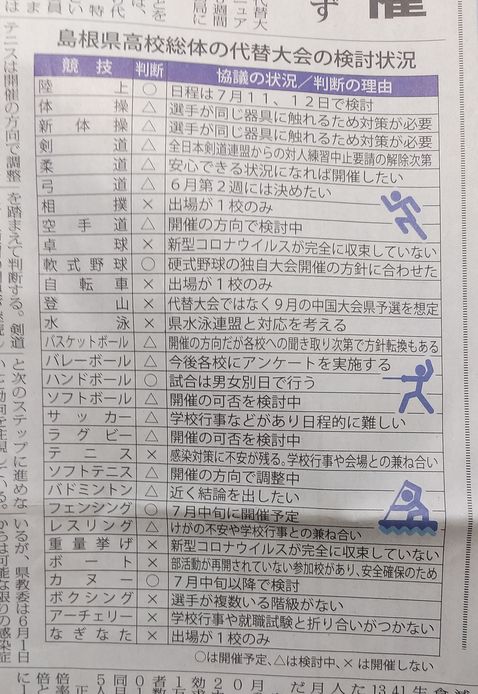 催
ず
島根県高校総体の代替大会の検討状況
競技 判断 協議の状況／判断の理由
陸上 ○ 日程は7月11、12日で検討
体操 △ 選手が同じ器具に触れるため対策が必要
新体操 △ 選手が同じ器具に触れるため対策が必要
剣道 △ 全日本剣道連盟からの対人練習中止要請の解除次第
柔道 △ 安心できる状況になれば開催したい
弓道 △ 6月第2週には決めたい
相撲 × 出場が1校のみ
空手道 △ 開催の方向で検討中
卓球 × 新型コロナウイルスが完全に収束していない
軟式野球 ○ 硬式野球の独自大会開催の方針に合わせた
自転車 × 出場が1校のみ
登山 × 代替大会ではなく9月の中国大会県予選を想定
水泳 × 県水泳連盟と対応を考える
バスケットボール △ 開催の方向だが各校への聞き取り次第で方針転換もある
バレーボール △ 今後各校にアンケートを実施する
ハンドボール ○ 試合は男女別日で行う
ソフトボール △ 開催の可否を検討中
サッカー △ 学校行事などがあり日程的に難しい
ラグビー △ 開催の可否を検討中
テニス × 感染対策に不安が残る。学校行事や会場との兼ね合い
ソフトテニス △ 開催の方向で調整中
バドミントン △ 近く結論を出したい
フェンシング ○ 7月中旬に開催予定
レスリング △ けがの不安や学校行事との兼ね合い
重量挙げ × 新型コロナウイルスが完全に収束していない
ボート × 部活動が再開されていない参加校があり、安全確保のため
カヌー ○ 7月中旬以降で検討
ボクシング × 選手が複数いる階級がない
アーチェリー × 学校行事や就職試験と折り合いがつかない
なぎなた × 出場が1校のみ
○は開催予定、△は検討中、×は開催しない
テニスは開催の方向で調整
を踏まえて判断する。剣道
と次のステップに進めな
いるが、県教委は6月1日
からは可能な限りの感染症